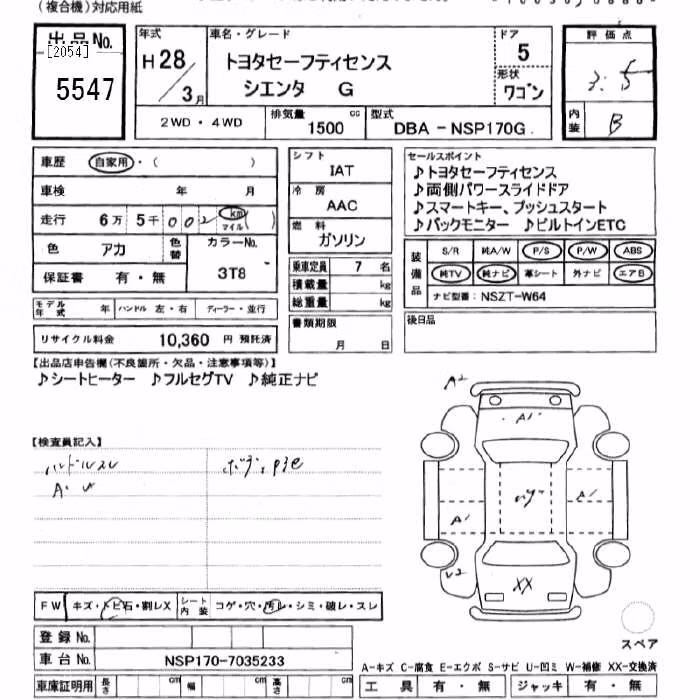 (複合機)対応用紙
出品No.
[2054]
5547
年式
H28/3月
車名・グレード
トヨタセーフティセンス
シエンタ G
ドア
5
形状
ワゴン
評価点
3.5
内装
B
2WD・4WD
排気量
1500 cc
型式
DBA-NSP170G
車歴 自家用・( )
車検 年 月
走行 6万 5千 002 km マイル ( )
色 アカ 色替
カラーNo.
3T8
保証書 有・無
シフト
IAT
冷房
AAC
燃料
ガソリン
乗車定員 7 名
積載量 kg
総重量 kg
セールスポイント
♪トヨタセーフティセンス
♪両側パワースライドドア
♪スマートキー、プッシュスタート
♪バックモニター ♪ビルトインETC
装備品
S/R 純A/W P/S P/W ABS
純TV 純ナビ 革シート 外ナビ エアB
ナビ型番: NSZT-W64
モデル年式 年 ハンドル 左・右 ディーラー・並行
リサイクル料金 10,360 円 預託済
書類期限
月 日
後日品
【出品店申告欄(不良箇所・欠品・注意事項等)】
♪シートヒーター ♪フルセグTV ♪純正ナビ
【検査員記入】
ハンドルスレ
A2
A1
A1
A1
XX
FW キズ・トビ石・割レX シート内装 コゲ・穴・汚レ・シミ・破レ・スレ
登録No.
車台No. NSP170-7035233
スペア
A-キズ C-腐食 E-エクボ S-サビ U-凹ミ W-補修 XX-交換済
車庫証明用 長さ cm 幅 cm 高さ cm
工具 有・無 ジャッキ 有・無